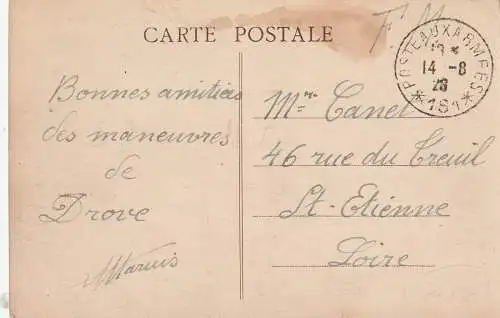 CARTE POSTALE
F.M.
POSTE AUX ARMEES
18
14 -8
28
*181*
Bonnes amitiés
des maneuvres
de
Drove
Mr Canet
46 rue du Treuil
St-Etienne
Loire